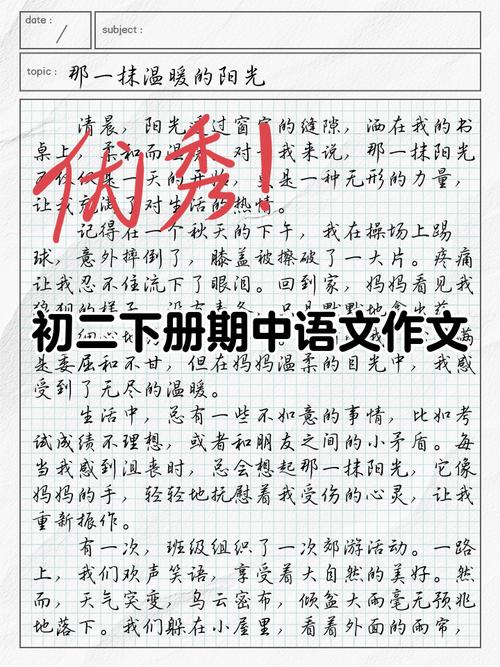 date :
subject :
topic : 那一抹温暖的阳光
清晨，阳光透过窗帘的缝隙，洒在我的书
桌上，柔和而温暖。对于我来说，那一抹阳光
不仅仅是一天的开始，更是一种无形的力量，
让我充满了对生活的热情。
优秀！
记得在一个秋天的下午，我在操场上踢
球，意外摔倒了，膝盖被擦破了一大片。疼痛
让我忍不住流下了眼泪。回到家，妈妈看见我
初二下册期中语文作文
是委屈和不甘，但在妈妈温柔的目光中，我感
受到了无尽的温暖。
生活中，总有一些不如意的事情，比如考
试成绩不理想，或者和朋友之间的小矛盾。每
当我感到沮丧时，总会想起那一抹阳光，它像
妈妈的手，轻轻地抚慰着我受伤的心灵，让我
重新振作。
有一次，班级组织了一次郊游活动。一路
上，我们欢声笑语，享受着大自然的美好。然
而，天气突变，乌云密布，倾盆大雨毫无预兆
地落下。我们躲在小屋里，看着外面的雨帘，